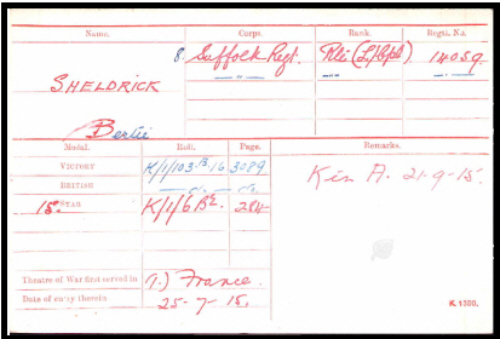 Name. Corps. Rank. Regtl. No.
8. Suffolk Regt. Pte (L/Cpl) 14059
SHELDRICK
Bertie
Medal. Roll. Page. Remarks.
VICTORY K/1/103.B.16. 3089
BRITISH
15. STAR K/1/6 B2. 284
Kin A. 21-9-15.
Theatre of War first served in (1.) France.
Date of entry therein 25-7-15.
K. 1380.